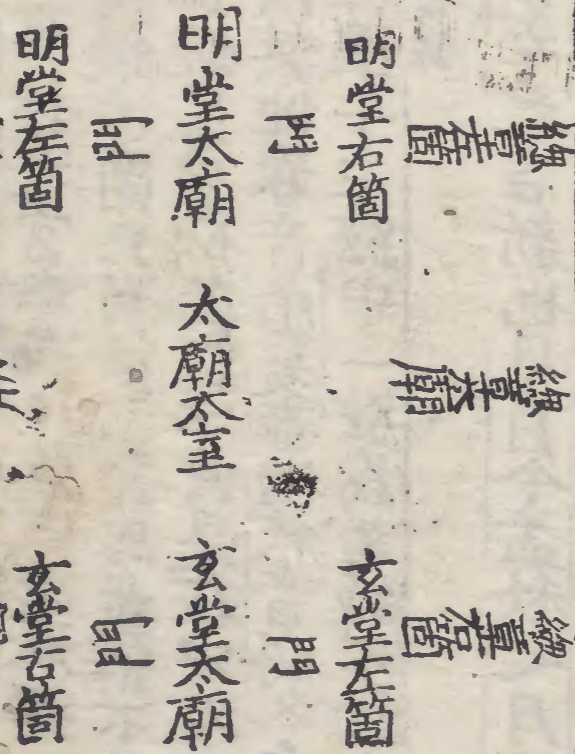 總章左箇
總章太廟
總章右箇
明堂右箇
玄堂左箇
門
門
明堂太廟
太廟太室
玄堂太廟
門
門
明堂左箇
玄堂右箇